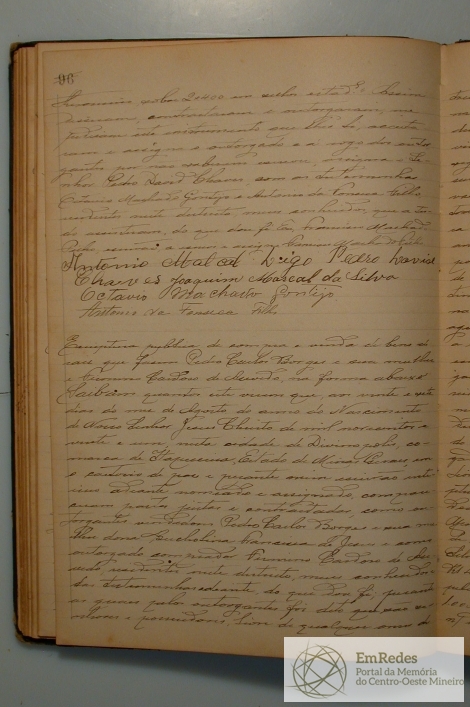 96
sobre 2$400 em sello
disseram, contractaram e outorgaram, me
pediram este instrumento que lhes li, aceita
ram e assigna o outorgado e a rogo dos outor
gantes por não saberem assignar, assigna o Se
nhor Pedro David Chaves, com as testemunhas
Octavio Machado Gontijo e Antonio da Fonseca Filho
residentes neste districto, meus conhecidos, que a tu
do assistiram, do que dou fé. Eu,
Antonio Marcal Digo Pedro David
Chaves Joaquim Marcal da Silva
Octavio Machado Gontijo
Antonio da Fonseca Filho
Escriptura publica de compra e venda de bens de
raiz que fazem Pedro Carlos Borges e sua mulher
a Firmino Cardoso de Azevedo, na forma abaixo
Saibam quantos esta virem que, aos vinte e sete
dias do mez de Agosto do anno do Nascimento
de Nosso Senhor Jesus Christo de mil novecentos e
vinte e um, nesta cidade de Divinopolis, co-
marca de Itapecerica, Estado de Minas Geraes, em
o cartorio de paz e perante mim escrivão inte
rino adiante nomeado e assignado, compare
ceram partes justas e contractadas, como ou
torgantes vendedores Pedro Carlos Borges e sua mu
lher dona Francisca de Jesus e como
outorgado comprador Firmino Cardoso de Aze
vedo residentes neste districto, meus conhecidos e
das testemunhas do que dou fé, perante
as quaes pelos outorgantes foi dito que sao se
nhores e possuidores, livre de qualquer onus de
EmRedes
Portal da Memória
do Centro-Oeste Mineiro